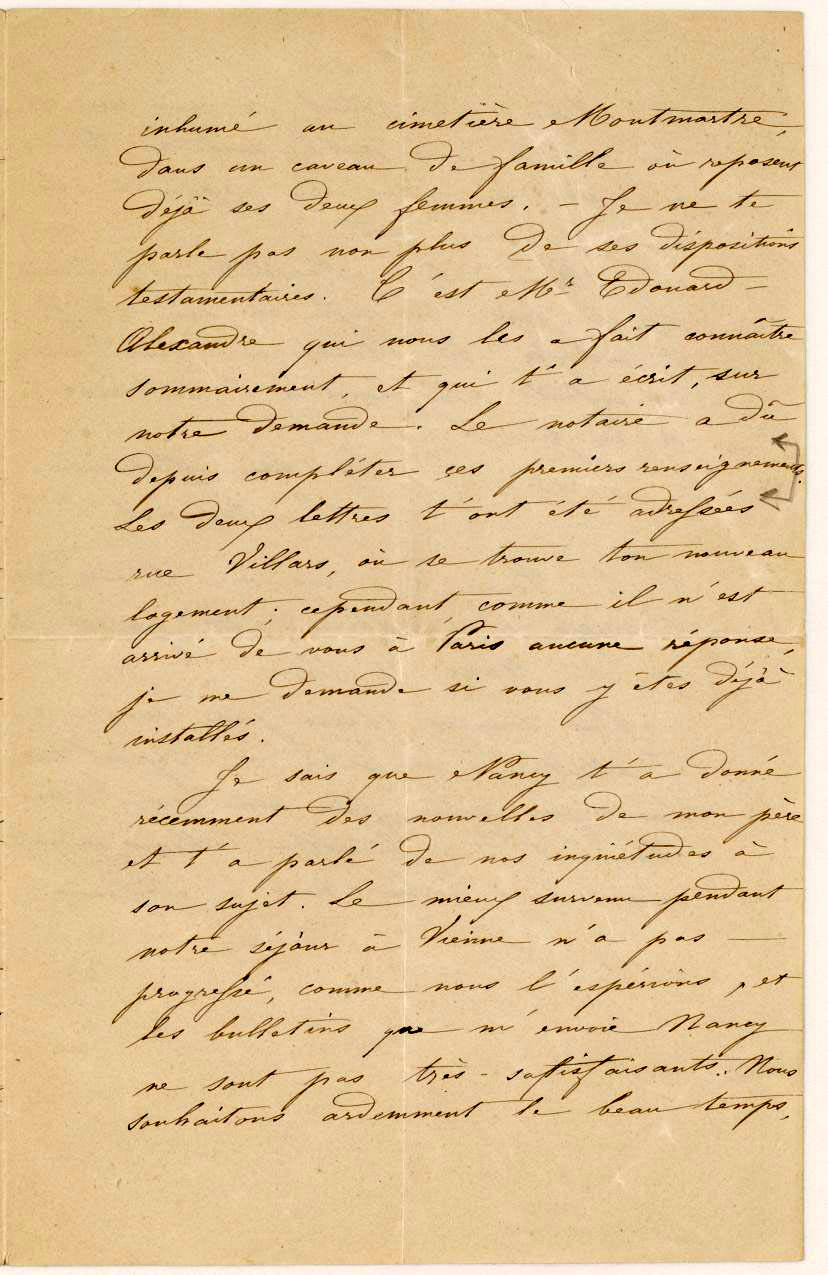 inhumé au cimetière Montmartre,
dans un caveau de famille où reposent
déjà ses deux femmes. — Je ne te
parle pas non plus de ses dispositions
testamentaires. C'est Mr Edouard-
Alexandre qui nous les a fait connaître
sommairement, et qui t'a écrit, sur
notre demande. Le notaire a dû
depuis compléter ces premiers renseignements.
Les deux lettres t'ont été adressées
rue Villars, où se trouve ton nouveau
logement; cependant, comme il n'est
arrivé de vous à Paris aucune réponse,
je me demande si vous y êtes déjà
installés.
Je sais que Nancy t'a donné
récemment des nouvelles de mon père
et t'a parlé de nos inquiétudes à
son sujet. Le mieux survenu pendant
notre séjour à Vienne n'a pas
progressé, comme nous l'espérions, et
les bulletins que m'envoie Nancy
ne sont pas très-satisfaisants. Nous
souhaitons ardemment le beau temps,